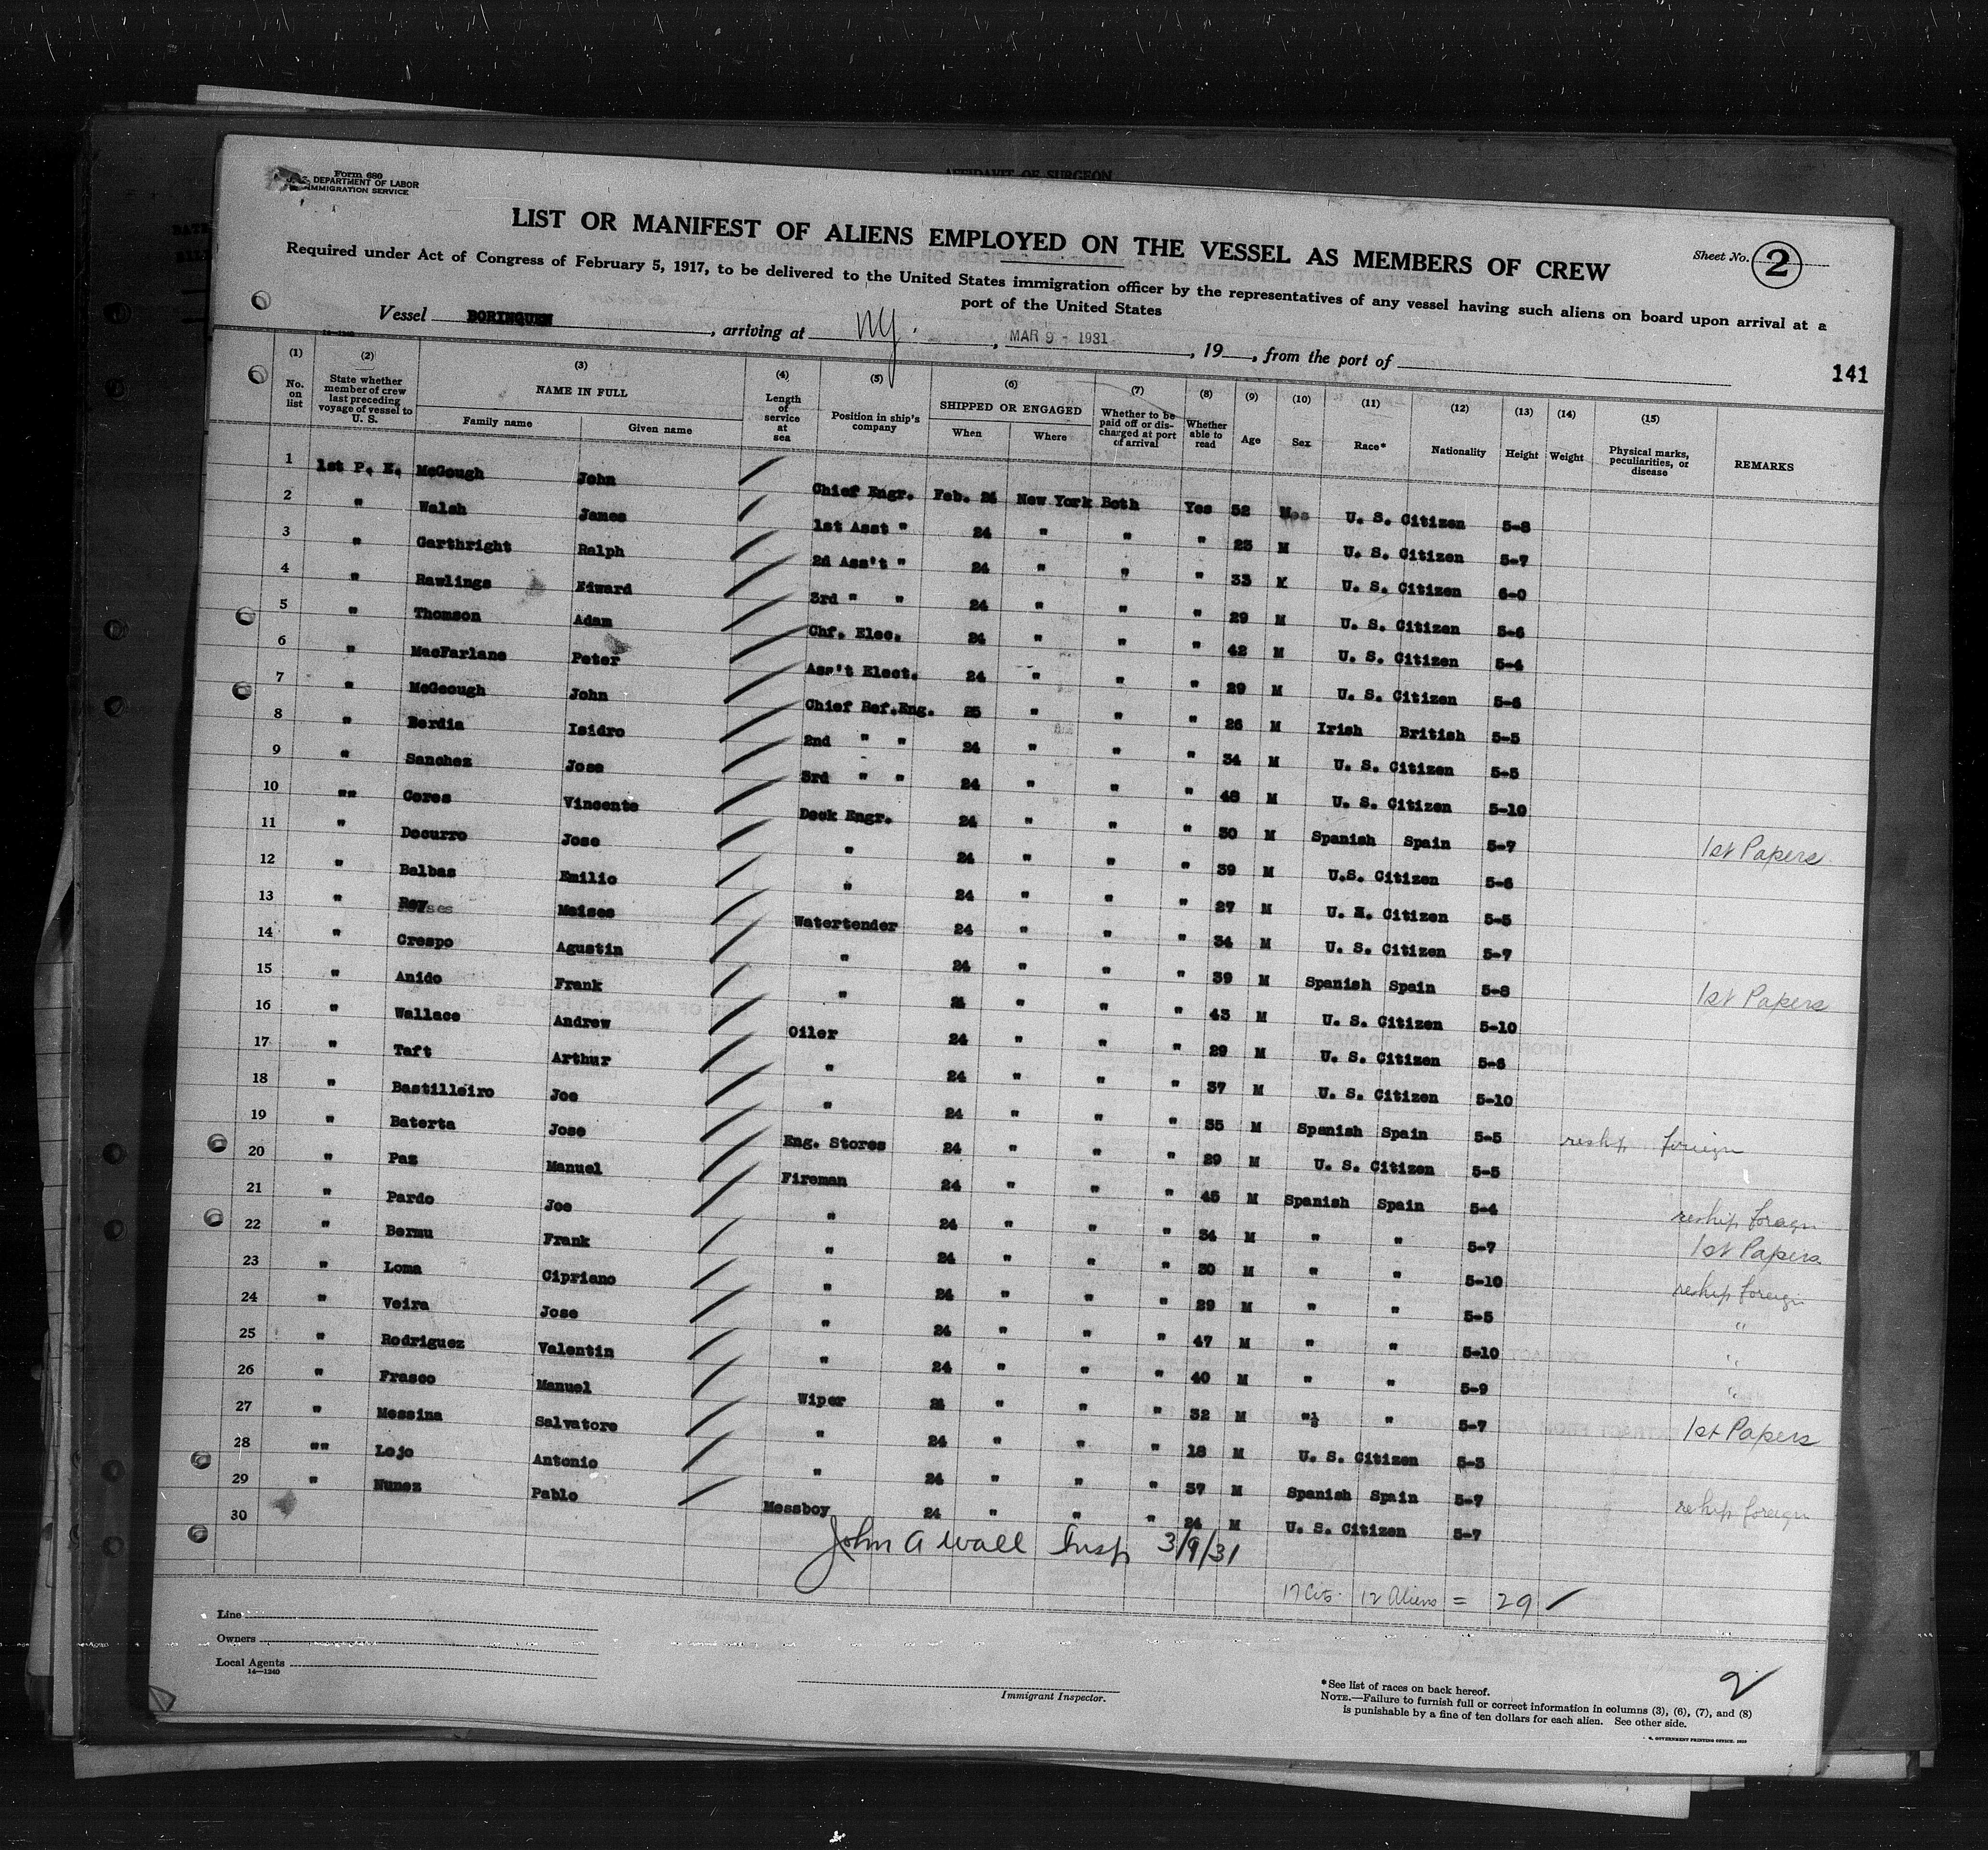 AFFIDAVIT OF SURGEON
Form 680
U. S. DEPARTMENT OF LABOR
IMMIGRATION SERVICE
LIST OR MANIFEST OF ALIENS EMPLOYED ON THE VESSEL AS MEMBERS OF CREW
Sheet No. 2
Required under Act of Congress of February 5, 1917, to be delivered to the United States immigration officer by the representatives of any vessel having such aliens on board upon arrival at a
port of the United States
Vessel BORINQUEN, arriving at NY., MAR 9 - 1931, 19__, from the port of
14-1240
141
(1) (2) (3) (4) (5) (6) (7) (8) (9) (10) (11) (12) (13) (14) (15)
No. on list State whether member of crew last preceding voyage of vessel to U. S. NAME IN FULL Family name Given name Length of service at sea Position in ship's company SHIPPED OR ENGAGED When Where Whether to be paid off or discharged at port of arrival Whether able to read Age Sex Race* Nationality Height Weight Physical marks, peculiarities, or disease REMARKS
1 1st P. E. McGough John Chief Engr. Feb. 24 New York Both Yes 52 U. S. Citizen 5-8
2 " Walsh James 1st Asst " 24 " " " 23 M U. S. Citizen 5-7
3 " Garthright Ralph 2d Ass't " 24 " " " 33 M U. S. Citizen 6-0
4 " Rawlings Edward 3rd " " 24 " " " 29 M U. S. Citizen 5-6
5 " Thomson Adam Chf. Elec. 24 " " " 42 M U. S. Citizen 5-4
6 " MacFarlane Peter Ass't Elect. 24 " " " 29 M U. S. Citizen 5-6
7 " McGeough John Chief Ref.Eng. 25 " " " 26 M Irish British 5-5
8 " Berdia Isidro 2nd " " 24 " " " 34 M U. S. Citizen 5-5
9 " Sanchez Jose 3rd " " 24 " " " 48 M U. S. Citizen 5-10
10 "" Ceres Vincente Deck Engr. 24 " " " 30 M Spanish Spain 5-7 1st Papers
11 " Docurro Jose " 24 " " " 39 M U.S. Citizen 5-6
12 " Balbas Emilio " 24 " " " 27 M U. S. Citizen 5-5
13 " Moises Watertender 24 " " " 34 M U. S. Citizen 5-7
14 " Crespo Agustin " 24 " " " 39 M Spanish Spain 5-8 1st Papers
15 " Anido Frank " 24 " " " 43 M U. S. Citizen 5-10
16 " Wallace Andrew Oiler 24 " " " 29 M U. S. Citizen 5-6
17 " Taft Arthur " 24 " " " 37 M U. S. Citizen 5-10
18 " Bastilleiro Joe " 24 " " " 35 M Spanish Spain 5-5 reship foreign
19 " Baterta Jose Eng. Stores 24 " " " 29 M U. S. Citizen 5-5
20 " Paz Manuel Fireman 24 " " " 45 M Spanish Spain 5-4 reship foreign
21 " Pardo Joe " 24 " " " 34 M " " 5-7 1st Papers
22 " Bermu Frank " 24 " " " 30 M " " 5-10 reship foreign
23 " Loma Cipriano " 24 " " " 29 M " " 5-5 "
24 " Veira Jose " 24 " " " 47 M " " 5-10 "
25 " Rodriguez Valentin " 24 " " " 40 M " " 5-9 "
26 " Frasco Manuel Wiper 24 " " " 32 M " " 5-7 1st Papers
27 " Messina Salvatore " 24 " " " 18 M U. S. Citizen 5-3
28 "" Lojo Antonio " 24 " " " 37 M Spanish Spain 5-7 reship foreign
29 " Nunez Pablo Messboy 24 " " " 24 M U. S. Citizen 5-7
30
John A Wall Insp 3/9/31
17 Cits. 12 Aliens = 29
Line
Owners
Local Agents
14-1240
Immigrant Inspector.
2
*See list of races on back hereof.
NOTE.—Failure to furnish full or correct information in columns (3), (6), (7), and (8)
is punishable by a fine of ten dollars for each alien. See other side.
GOVERNMENT PRINTING OFFICE